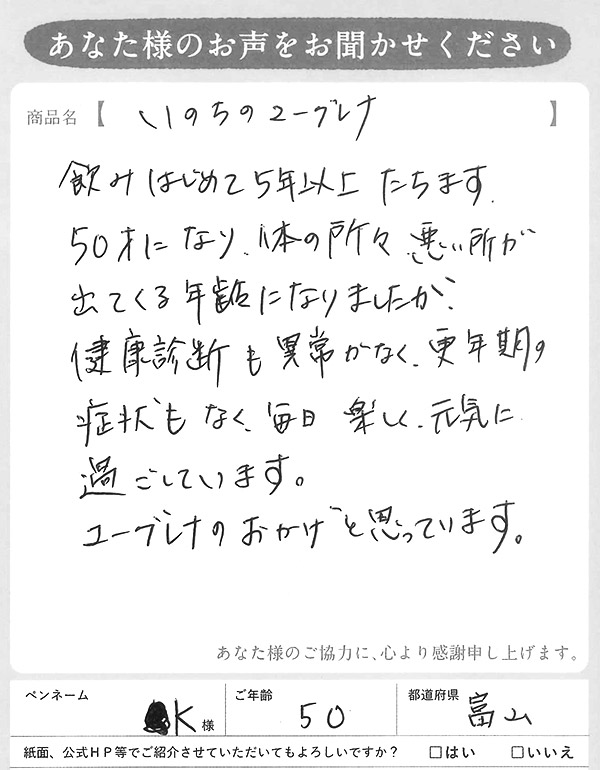 あなた様のお声をお聞かせください
商品名【 いのちのユーグレナ 】
飲みはじめて5年以上 たちます.
50才になり、体の所々 悪い所が
出てくる年齢になりましたが、
健康診断も異常がなく、更年期の
症状もなく、毎日 楽しく、元気に
過ごしています。
ユーグレナのおかげと思っています。
あなた様のご協力に、心より感謝申し上げます。
ペンネーム K様 ご年齢 50 都道府県 富山
紙面、公式HP等でご紹介させていただいてもよろしいですか? □はい □いいえ